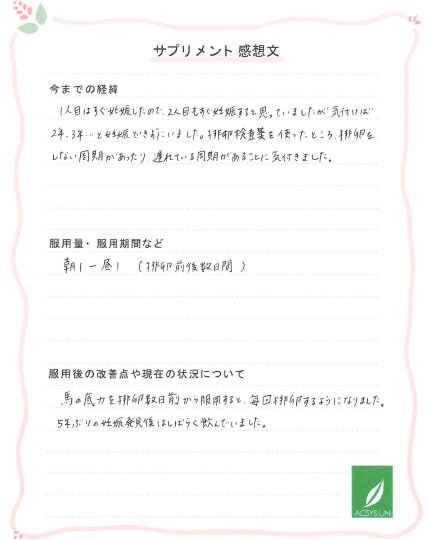 サプリメント 感想文
今までの経緯
1人目はすぐ妊娠したので、2人目もすぐ妊娠すると思っていましたが気付けば
2年、3年…と妊娠できずにいました。排卵検査薬を使ったところ、排卵を
しない周期があったり、遅れている周期があることに気付きました。
服用量・服用期間など
朝1 ー 昼1 （排卵前後数日間）
服用後の改善点や現在の状況について
馬の底力を排卵数日前から服用すると、毎回排卵するようになりました。
5年ぶりの妊娠発覚後はしばらく飲んでいました。
ACSYS UN